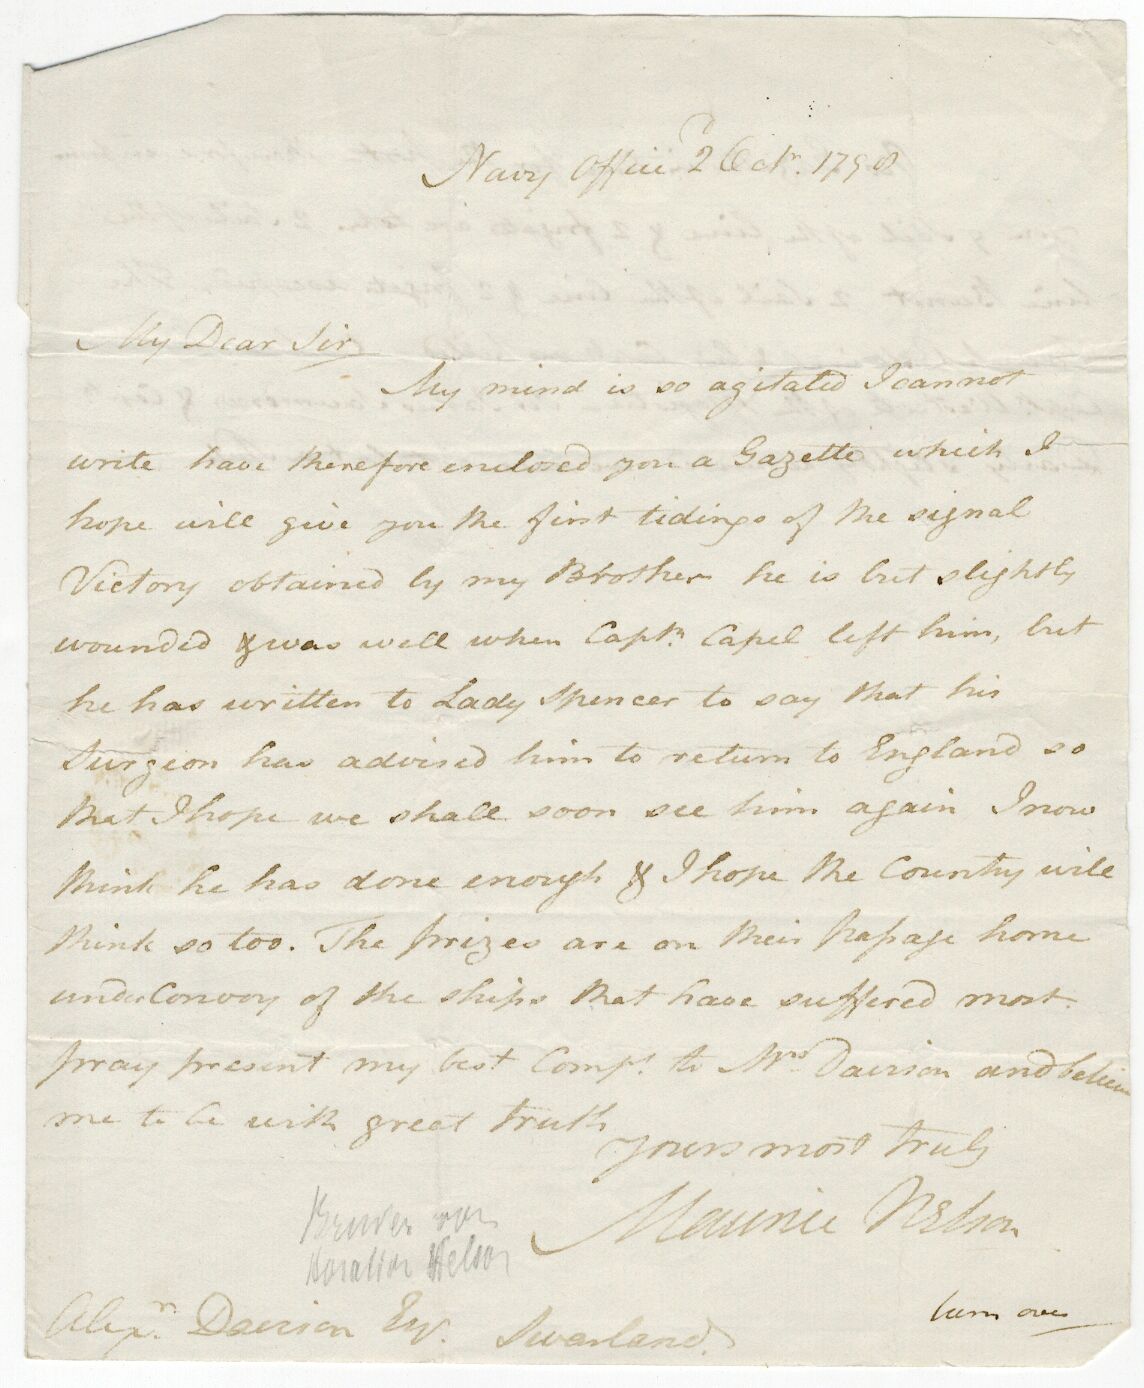 Navy Office 2d Octr. 1798
My Dear Sir
My mind is so agitated I cannot
write have therefore enclosed you a Gazette which I
hope will give you the first tidings of the signal
Victory obtained by my Brother he is but slightly
wounded & was well when Captn. Capel left him, but
he has written to Lady Spencer to say that his
Surgeon has advised him to return to England so
that I hope we shall soon see him again I now
think he has done enough & I hope the Country will
think so too. The prizes are on their passage home
under Convoy of the ships that have suffered most.
pray present my best Compts. to Mrs. Davison and believe
me to be with great truth
yours most truly
Maurice Nelson
Bruder von
Horatior Nelson
turn over
Alexn. Davison Esqr. Swarland.